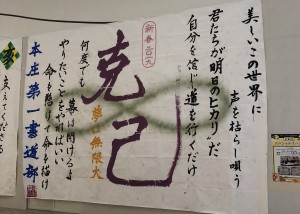 美しいこの世界に
声を枯らし唄う
君たちが明日のヒカリだ
自分を信じ道を行くだけ
克己
夢は無限大
何度でも
幕は開けるよ
やりたいことをやればいい
命を懸けて命を描け
本庄第一書道部